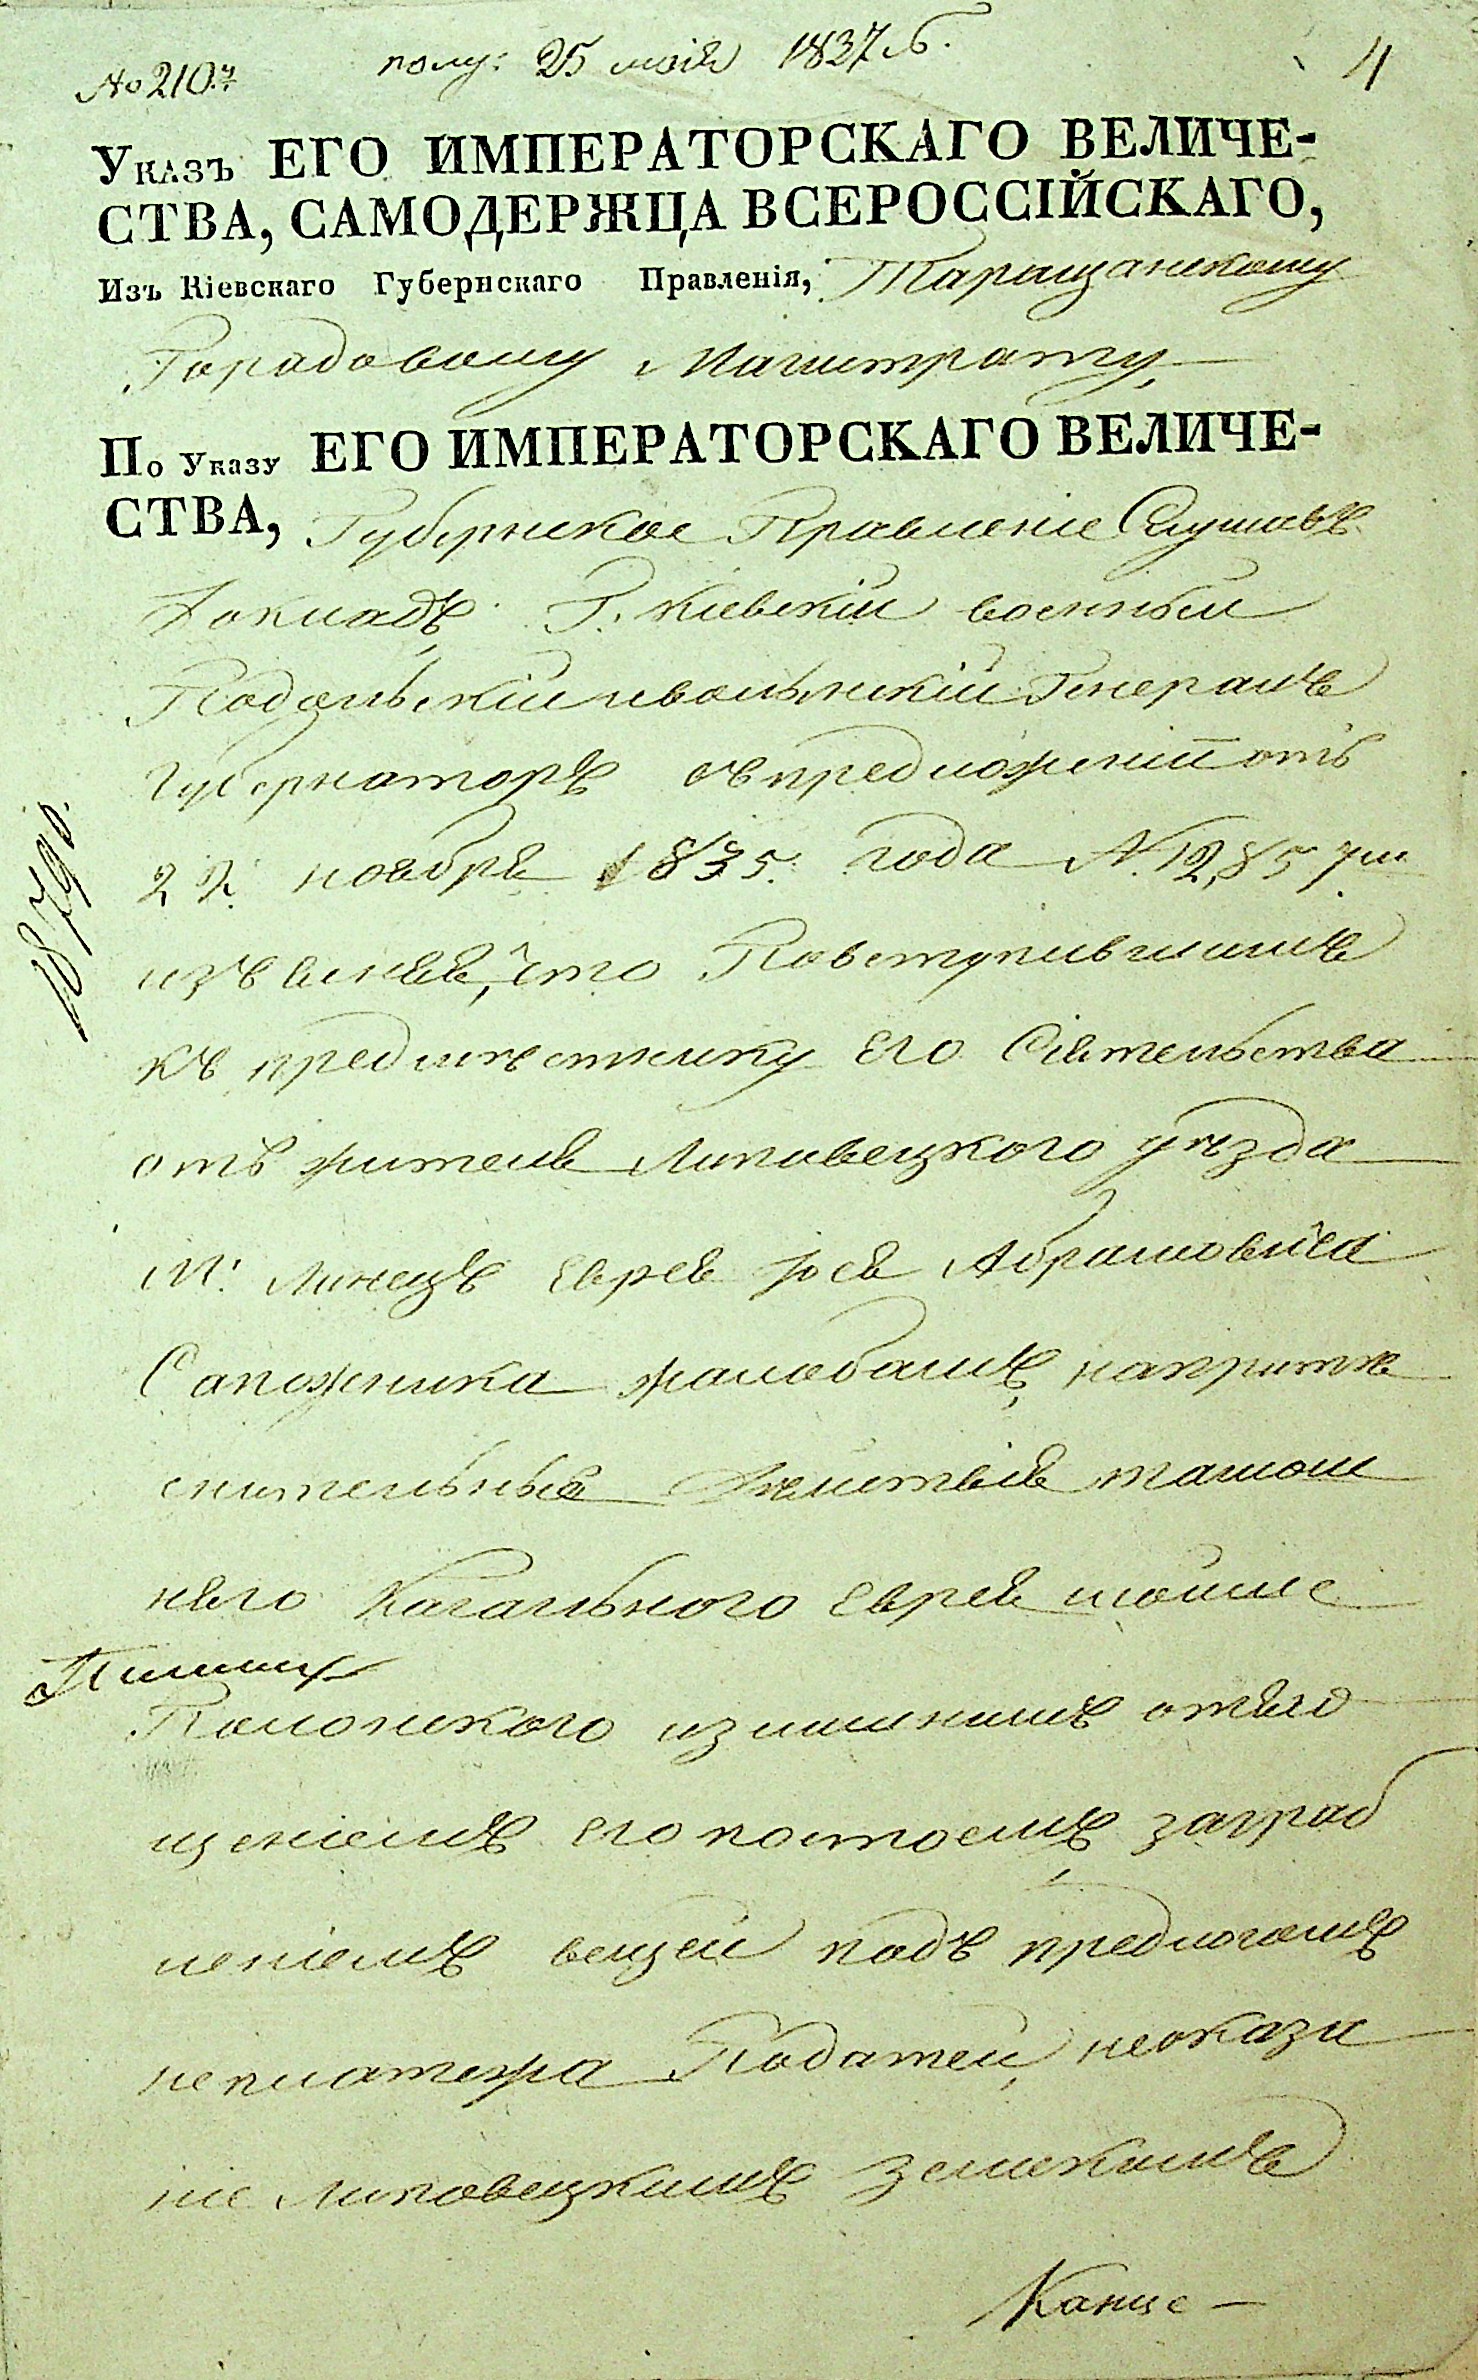 № 210.
полу: 25 маія 1837 г.
4
Указъ ЕГО ИМПЕРАТОРСКАГО ВЕЛИЧЕ-
СТВА, САМОДЕРЖЦА ВСЕРОССІЙСКАГО,
Изъ Кіевскаго Губернскаго Правленія, Таращанскому
Городовому Магистрату
По Указу ЕГО ИМПЕРАТОРСКАГО ВЕЛИЧЕ-
СТВА, Губернское Правленіе Слушавъ
Докладъ Г. Кіевскій военный
Подольскій и волынскій Генералъ
Губернаторъ въ предложеніи отъ
22 ноября 1835. года N. 12,857
изъясняя, чтоПовступившимъ
къ предмѣстнику Его Сіятельства
отъ жителя Липовецкого уѣзда
М. Линецъ Еврея Іося Абрамовича
Сапожника жалобамъ, напритѣ
снительныя дѣйствія тамош
няго Кагального Еврея
Полонского излишнимъ отяго
щеніемъ его постоемъ, заграб
леніемъ вещей подъ предлогомъ
неплатежа Податей, неоказа
ніе Липовецкимъ Земскимъ
Канце-
18790.